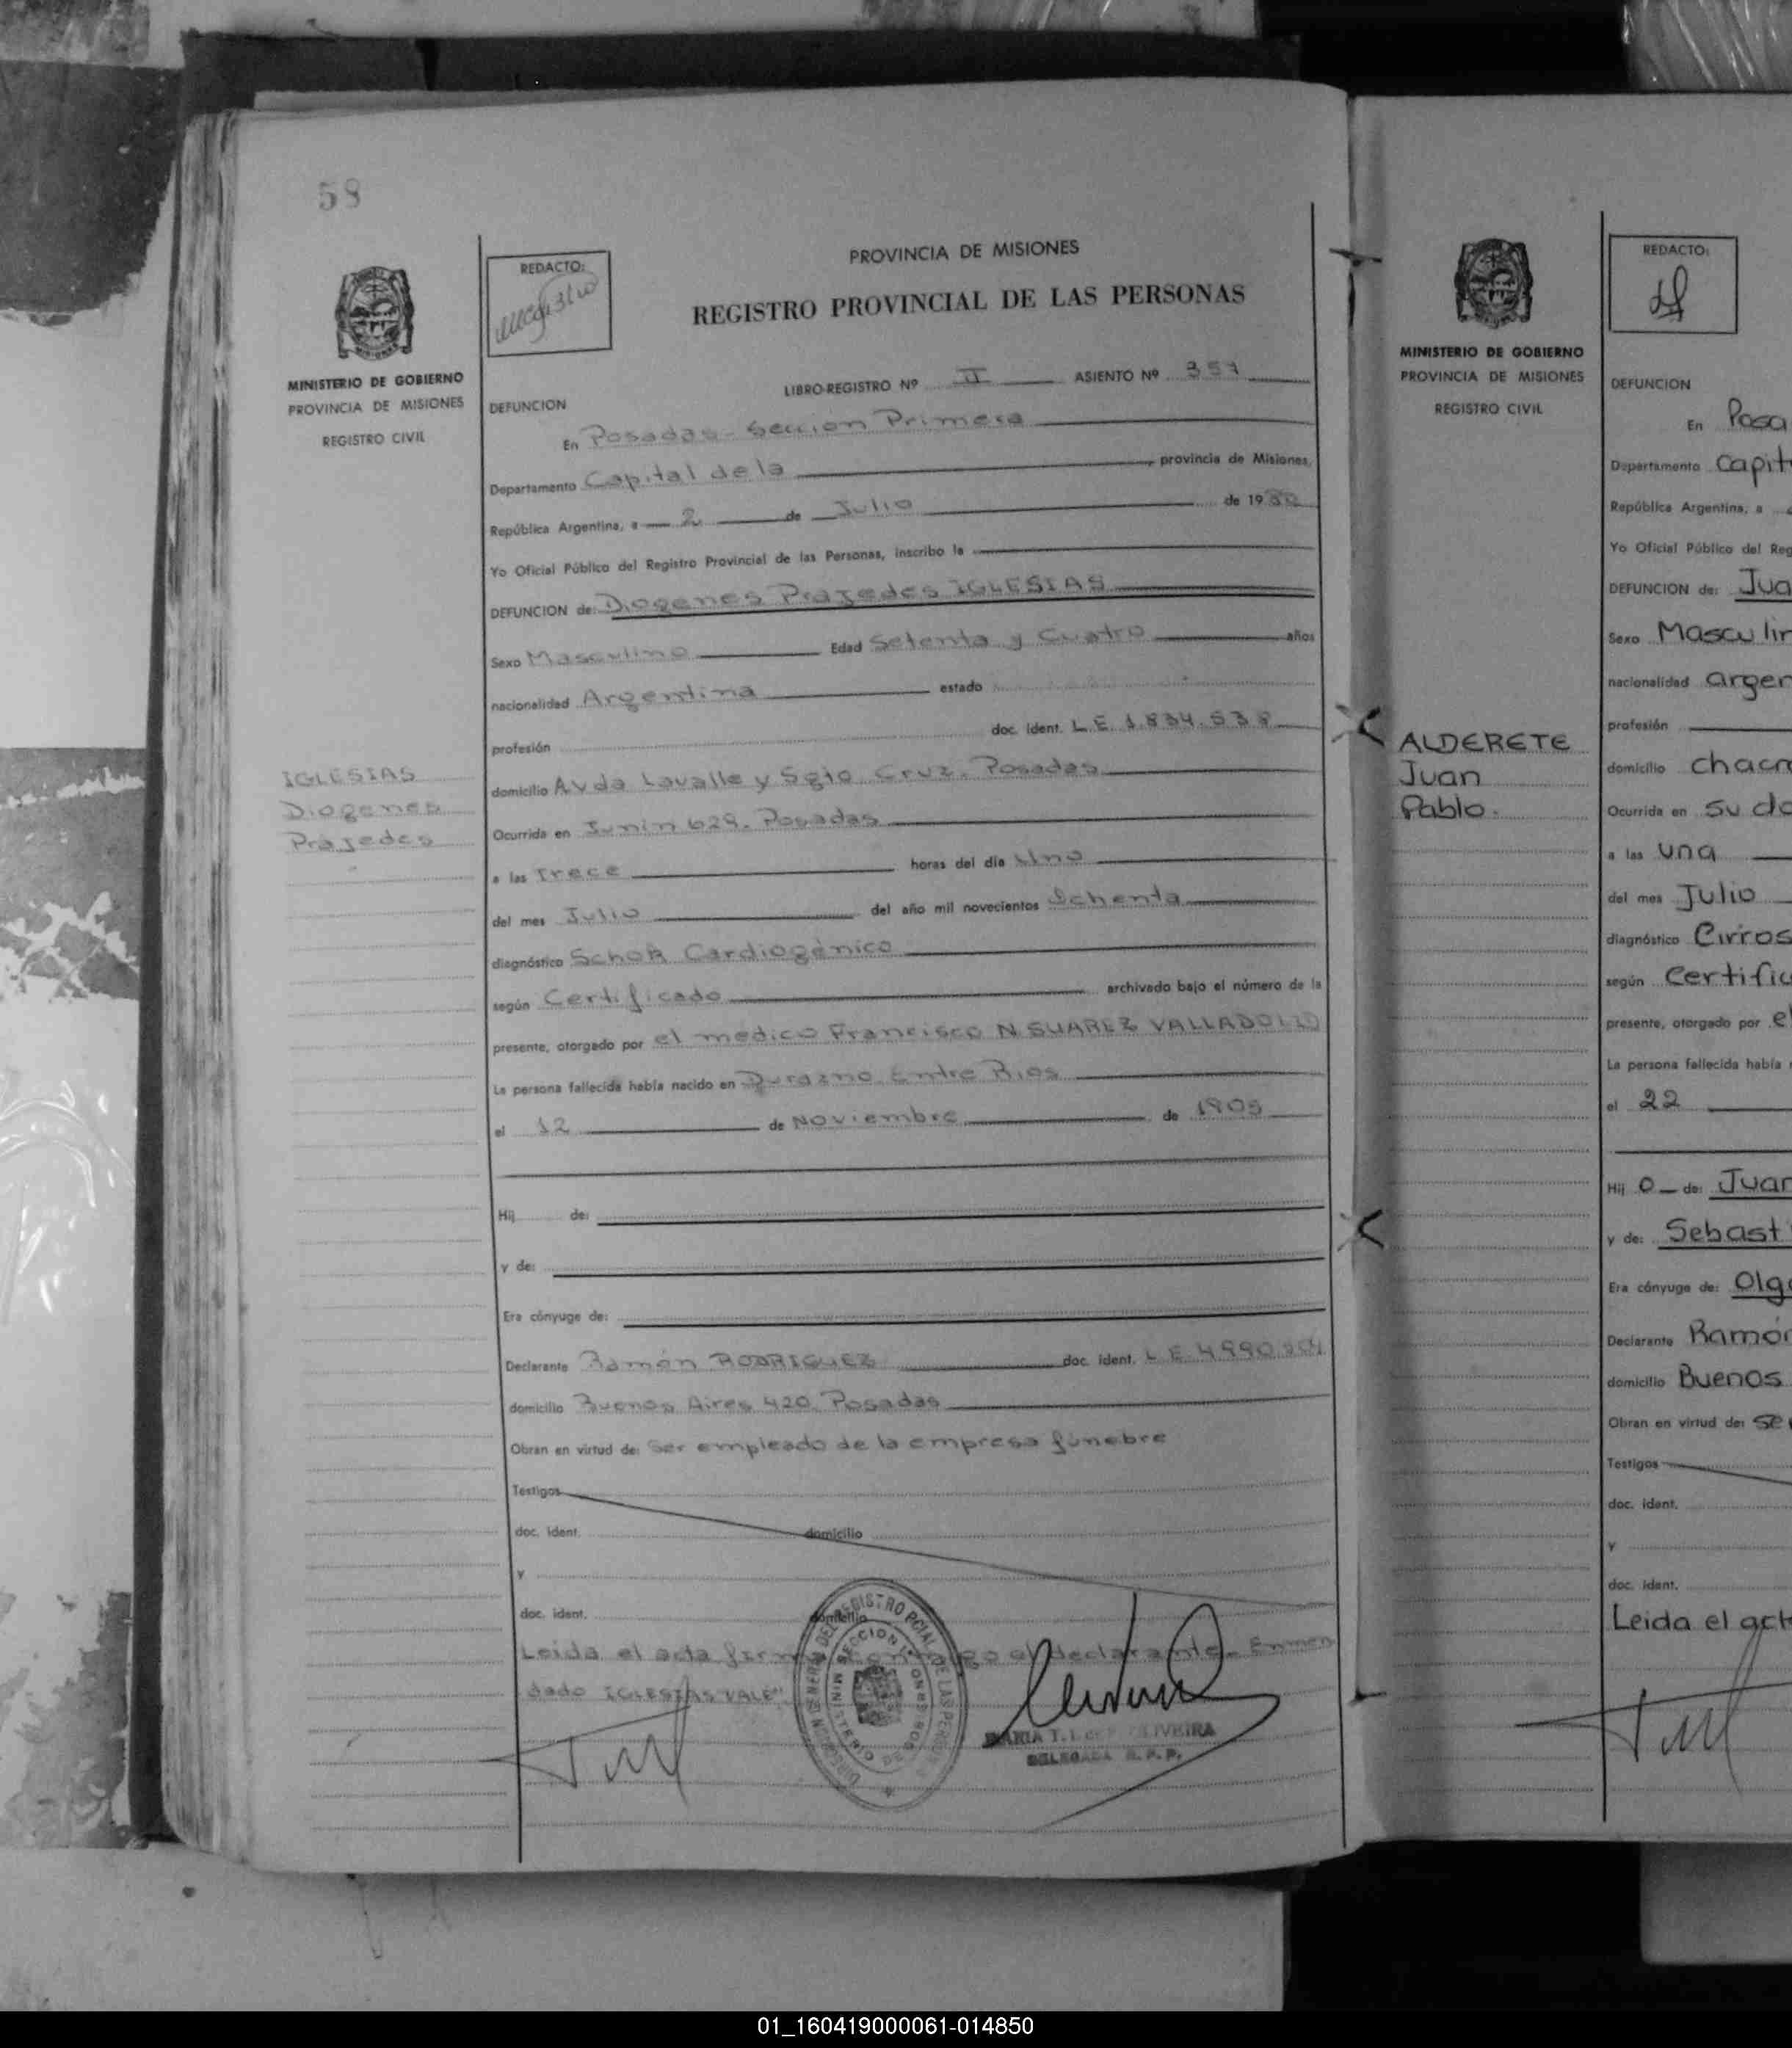 58
PROVINCIA DE MISIONES
REGISTRO PROVINCIAL DE LAS PERSONAS
REDACTO:
MINISTERIO DE GOBIERNO
PROVINCIA DE MISIONES
REGISTRO CIVIL
LIBRO-REGISTRO Nº II ASIENTO Nº 357
DEFUNCION
En Posadas - Seccion Primera
Departamento Capital de la, provincia de Misiones,
República Argentina, a 2 de Julio de 1980
Yo Oficial Público del Registro Provincial de las Personas, inscribo la
DEFUNCION de: Diogenes Prajedes IGLESIAS
Sexo Masculino Edad Setenta y Cuatro años
nacionalidad Argentina estado
profesión doc. ident. L E 1.834.538
IGLESIAS
Diogenes
Prajedes
domicilio Avda Lavalle y Sgto Cruz. Posadas
Ocurrida en Junin 629. Posadas
a las Trece horas del día Uno
del mes Julio del año mil novecientos Ochenta
diagnóstico Schok Cardiogénico
según Certificado archivado bajo el número de la
presente, otorgado por el medico Francisco N. SUAREZ VALLADOLID
La persona fallecida había nacido en Durazno. Entre Rios
el 12 de Noviembre de 1905
Hij de:
y de:
Era cónyuge de:
Declarante Ramón RODRIGUEZ doc. ident. L E 4990.
domicilio Buenos Aires 420. Posadas
Obran en virtud de: Ser empleado de la empresa fúnebre
Testigos
doc. ident. domicilio
y
doc. ident. domicilio
Leida el acta firma conmigo el declarante. Enmen
dado IGLESIAS VALE"
DIRECCION GENERAL DEL REGISTRO PCIAL. DE LAS PERSONAS
SECCION 1ª
MINISTERIO DE GOBIERNO
MARIA T. I. de OLIVEIRA
DELEGADA R. P. P.
REDACTO:
MINISTERIO DE GOBIERNO
PROVINCIA DE MISIONES
REGISTRO CIVIL
DEFUNCION
En Posa
Departamento Capit
República Argentina, a
Yo Oficial Público del Reg
DEFUNCION de: Jua
Sexo Masculin
nacionalidad argen
profesión
ALDERETE
Juan
Pablo.
domicilio chacr
Ocurrida en su do
a las una
del mes Julio
diagnóstico Cirros
según Certific
presente, otorgado por el
La persona fallecida había
el 22
Hij o de: Juan
y de: Sebast
Era cónyuge de: Olg
Declarante Ramón
domicilio Buenos
Obran en virtud de: Se
Testigos
doc. ident.
y
doc. ident.
Leida el act
01_160419000061-014850